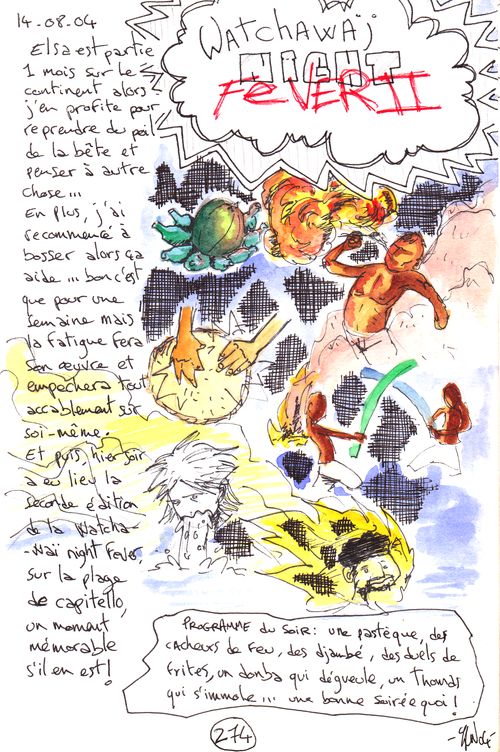 14.08.04
Watchawaï
NIGHT
FEVER II
Elsa est partie
1 mois sur le
continent alors
j'en profite pour
reprendre du poil
de la bête et
penser à autre
chose...
En plus, j'ai
recommencé à
bosser alors ça
aide... bon c'est
que pour une
semaine mais
la fatigue fera
son œuvre et
empêchera tout
accablement sur
soi-même.
Et puis, hier soir
a eu lieu la
seconde édition
de la Watcha-
-wai night Fever,
sur la plage
de capitello,
un moment
mémorable
s'il en est!
PROGRAMME du SOIR: une pastèque, des
cracheurs de feu, des djambé, des duels de
frites, un donba qui dégueule, un Thomas
qui s'immole... une bonne soirée quoi!
274